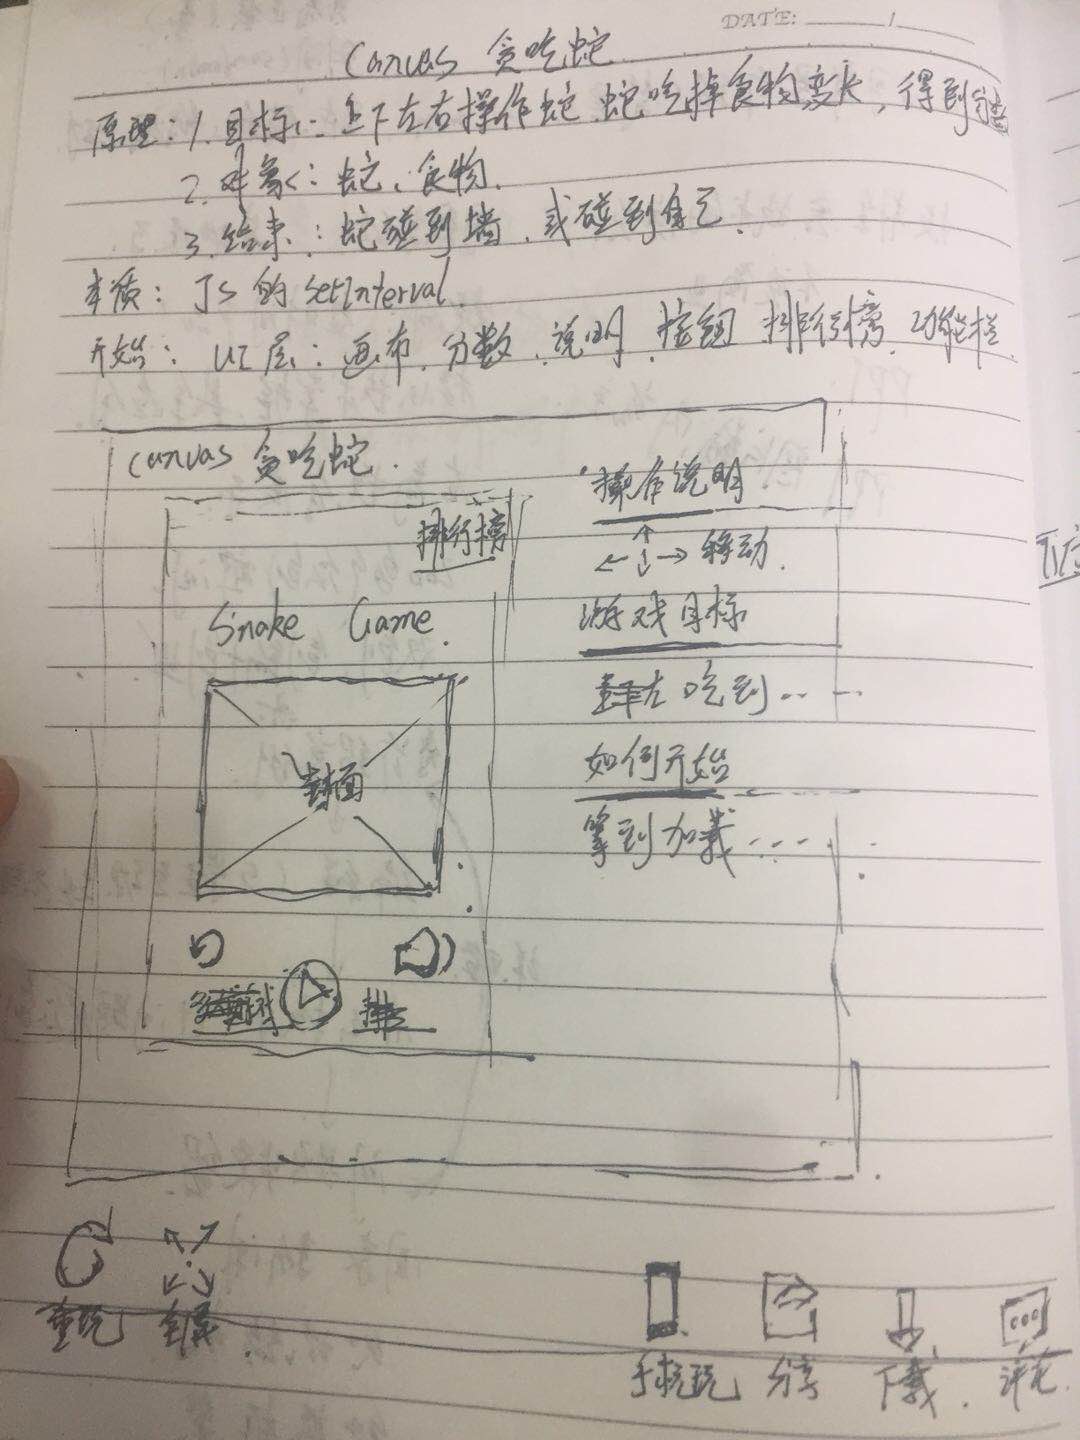 DATE: ____/____
Canvas 贪吃蛇
原理: 1. 目标: 上下左右操作蛇、蛇吃掉食物变长, 得到分
2. 对象: 蛇、食物.
3. 结束: 蛇碰到墙、或碰到自己.
本质: JS 的 setInterval.
开始: UI层: 画布、分数、说明、按钮、排行榜、功能栏.
Canvas 贪吃蛇.
排行榜
Snake Game.
封面
操作说明
移动.
游戏目标
左 吃到...
如何开始
等到加载...
重玩
全屏
手机玩
分享
下载.
评论